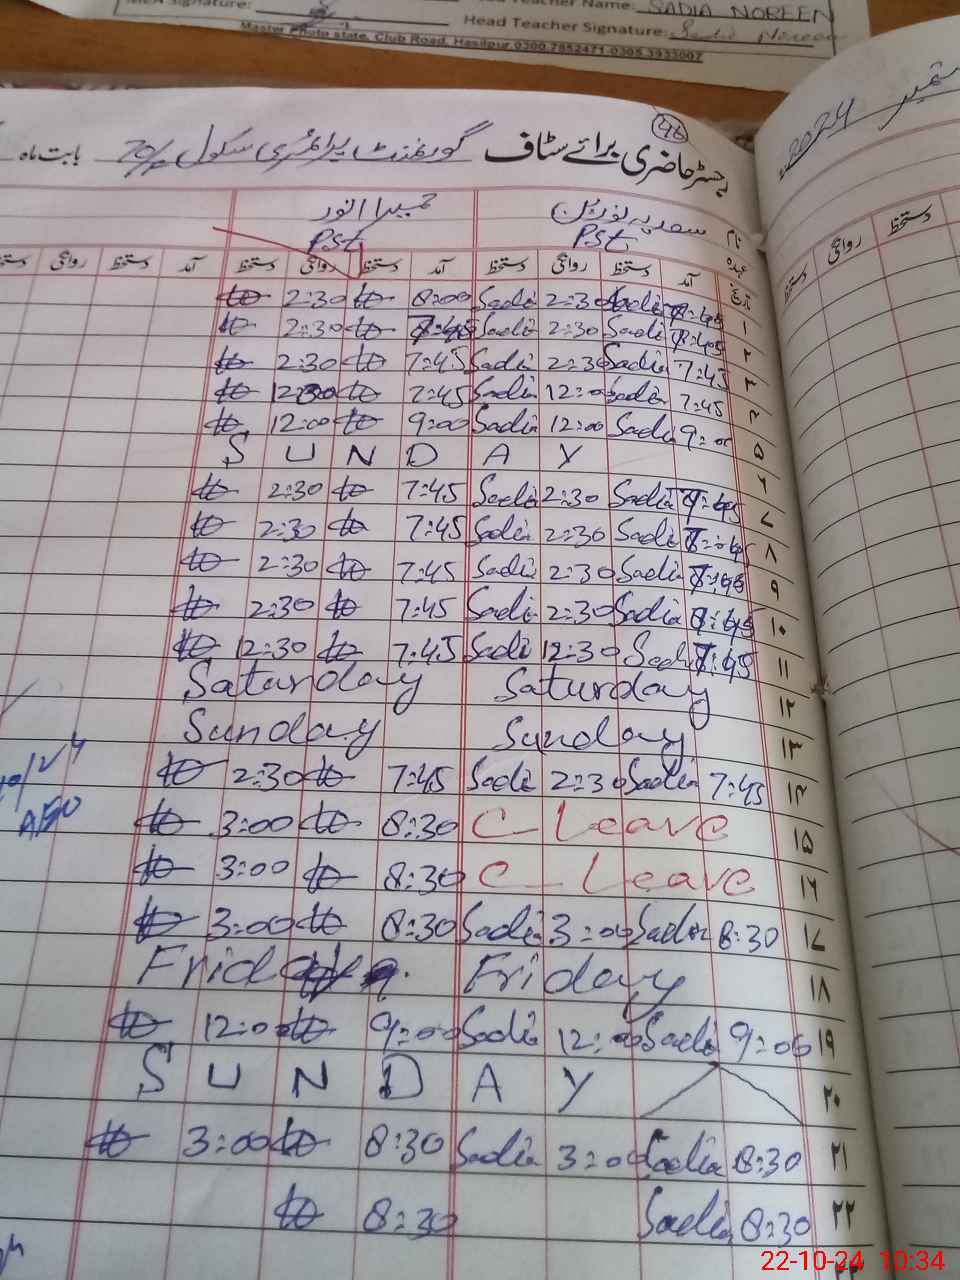 Head Teacher Name: SADIA NOREEN
MEA Signature:
Head Teacher Signature: Sadia Noreen
Master Photo state, Club Road, Hasilpur 0300 7852471-0305 3933007
46
رجسٹر حاضری برائے سٹاف گورنمنٹ پرائمری سکول بابت ماہ
ستمبر 2024
نام سعدیہ نورین حمیرا انور
عہدہ PST PST
تاریخ آمد دستخط روانگی دستخط آمد دستخط روانگی دستخط آمد دستخط روانگی دستخط
۱ 7:45 Sadia 2:30 Sadia 8:00 2:30
۲ 7:45 Sadia 2:30 Sadia 7:45 2:30
۳ 7:45 Sadia 2:30 Sadia 7:45 2:30
۴ 7:45 Sadia 12:00 Sadia 7:45
۵ 9:00 Sadia 12:00 Sadia 9:00 12:00
۶ SUNDAY
۷ 7:45 Sadia 2:30 Sadia 7:45 2:30
۸ 7:45 Sadia 2:30 Sadia 7:45 2:30
۹ 7:45 Sadia 2:30 Sadia 7:45 2:30
۱۰ 7:45 Sadia 2:30 Sadia 7:45 2:30
۱۱ 7:45 Sadia 12:30 Sadia 7:45 12:30
۱۲ Saturday Saturday
۱۳ Sunday Sunday
۱۴ 7:45 Sadia 2:30 Sadia 7:45 2:30
۱۵ C-Leave 8:30 3:00
۱۶ C-Leave 8:30 3:00
۱۷ 8:30 Sadia 3:00 Sadia 8:30 3:00
۱۸ Friday Friday
۱۹ 9:00 Sadia 12:00 Sadia 9:00 12:00
۲۰ SUNDAY
۲۱ 8:30 Sadia 3:00 Sadia 8:30 3:00
۲۲ 8:30 Sadia 8:30
22-10-24 10:34